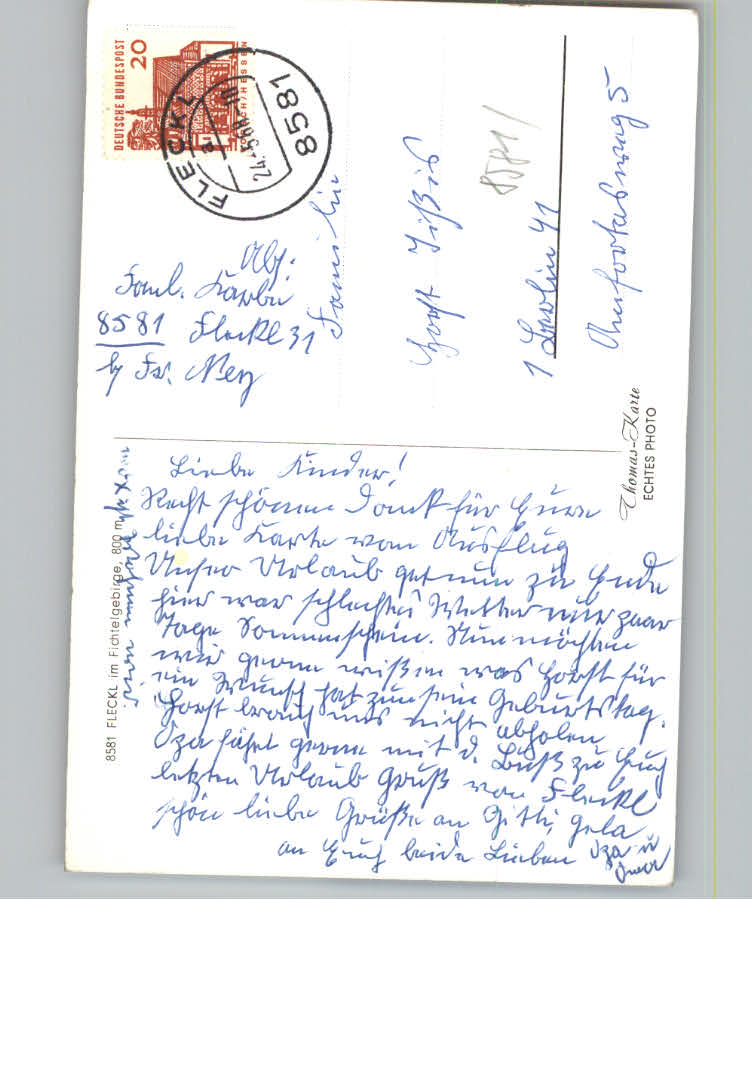 DEUTSCHE BUNDESPOST
20
FLECKL
8581
Abs:
Faml. Karbe
8581 Fleckl 31
b/ Fr. Merz
Familie
Horst
8581/
1 Berlin 41
5
Thomas-Karte
ECHTES PHOTO
8581 FLECKL im Fichtelgebirge, 800 m
Liebe Kinder!
Recht schönen Dank für Eure
liebe Karte vom Ausflug
Unser Urlaub get nun zu Ende
hier war schlechtes Wetter nur paar
Tage Sonnenschein. Nun möchten
wir gerne wißen was Horst für
ein Wunsch hat zum sein Geburtstag.
Horst brauch uns nicht abholen
Opa fährt gerne mit d. Buß zu Euch
letzten Urlaub Gruß von Fleckl
schön liebe Grüße an Gitti, Gela
an Euch beide Lieben Opa u
Oma